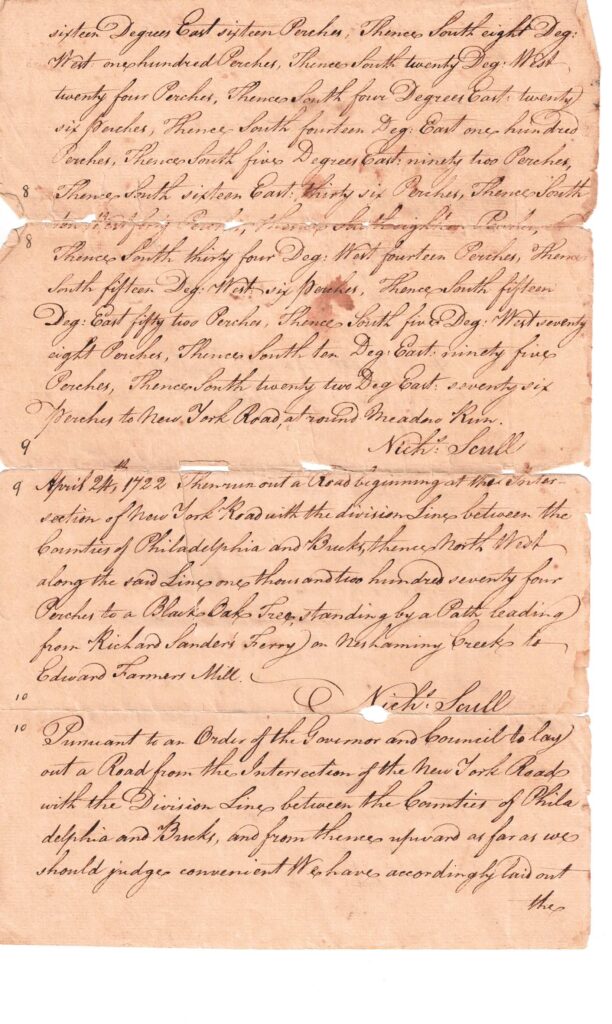 sixteen Degrees East sixteen Perches, Thence South eight Deg:
West one hundred Perches, Thence South twenty Deg: West
twenty four Perches, Thence South four Degrees East: twenty
six Perches, Thence South fourteen Deg: East one hundred
Perches, Thence South five Degrees East: ninety two Perches,
8 Thence South sixteen East: thirty six Perches, Thence South
8
Thence South thirty four Deg: West fourteen Perches, Thence
South fifteen Deg: West six Perches, Thence South fifteen
Deg: East fifty two Perches, Thence South five Deg: West seventy
eight Perches, Thence South ten Deg: East: ninety five
Perches, Thence South twenty two Deg East: seventy six
Perches to New York Road, at round Meadow Run.
9 Nichs: Scull
9 April 24th, 1722 Then run out a Road beginning at the Inter-
section of New York Road with the division Line between the
Counties of Philadelphia and Bucks, thence North West
along the said Line one thousand two hundred seventy four
Perches to a Black Oak Tree, standing by a Path leading
from Richard Sanders Ferry on Neshaminy Creek to
Edward Farmers Mill.
10 Nichs: Scull
10 Pursuant to an Order of the Governor and Council to lay
out a Road from the Intersection of the New York Road
with the Division Line between the Counties of Phila-
delphia and Bucks, and from thence upward as far as we
should judge convenient We have accordingly laid out
the